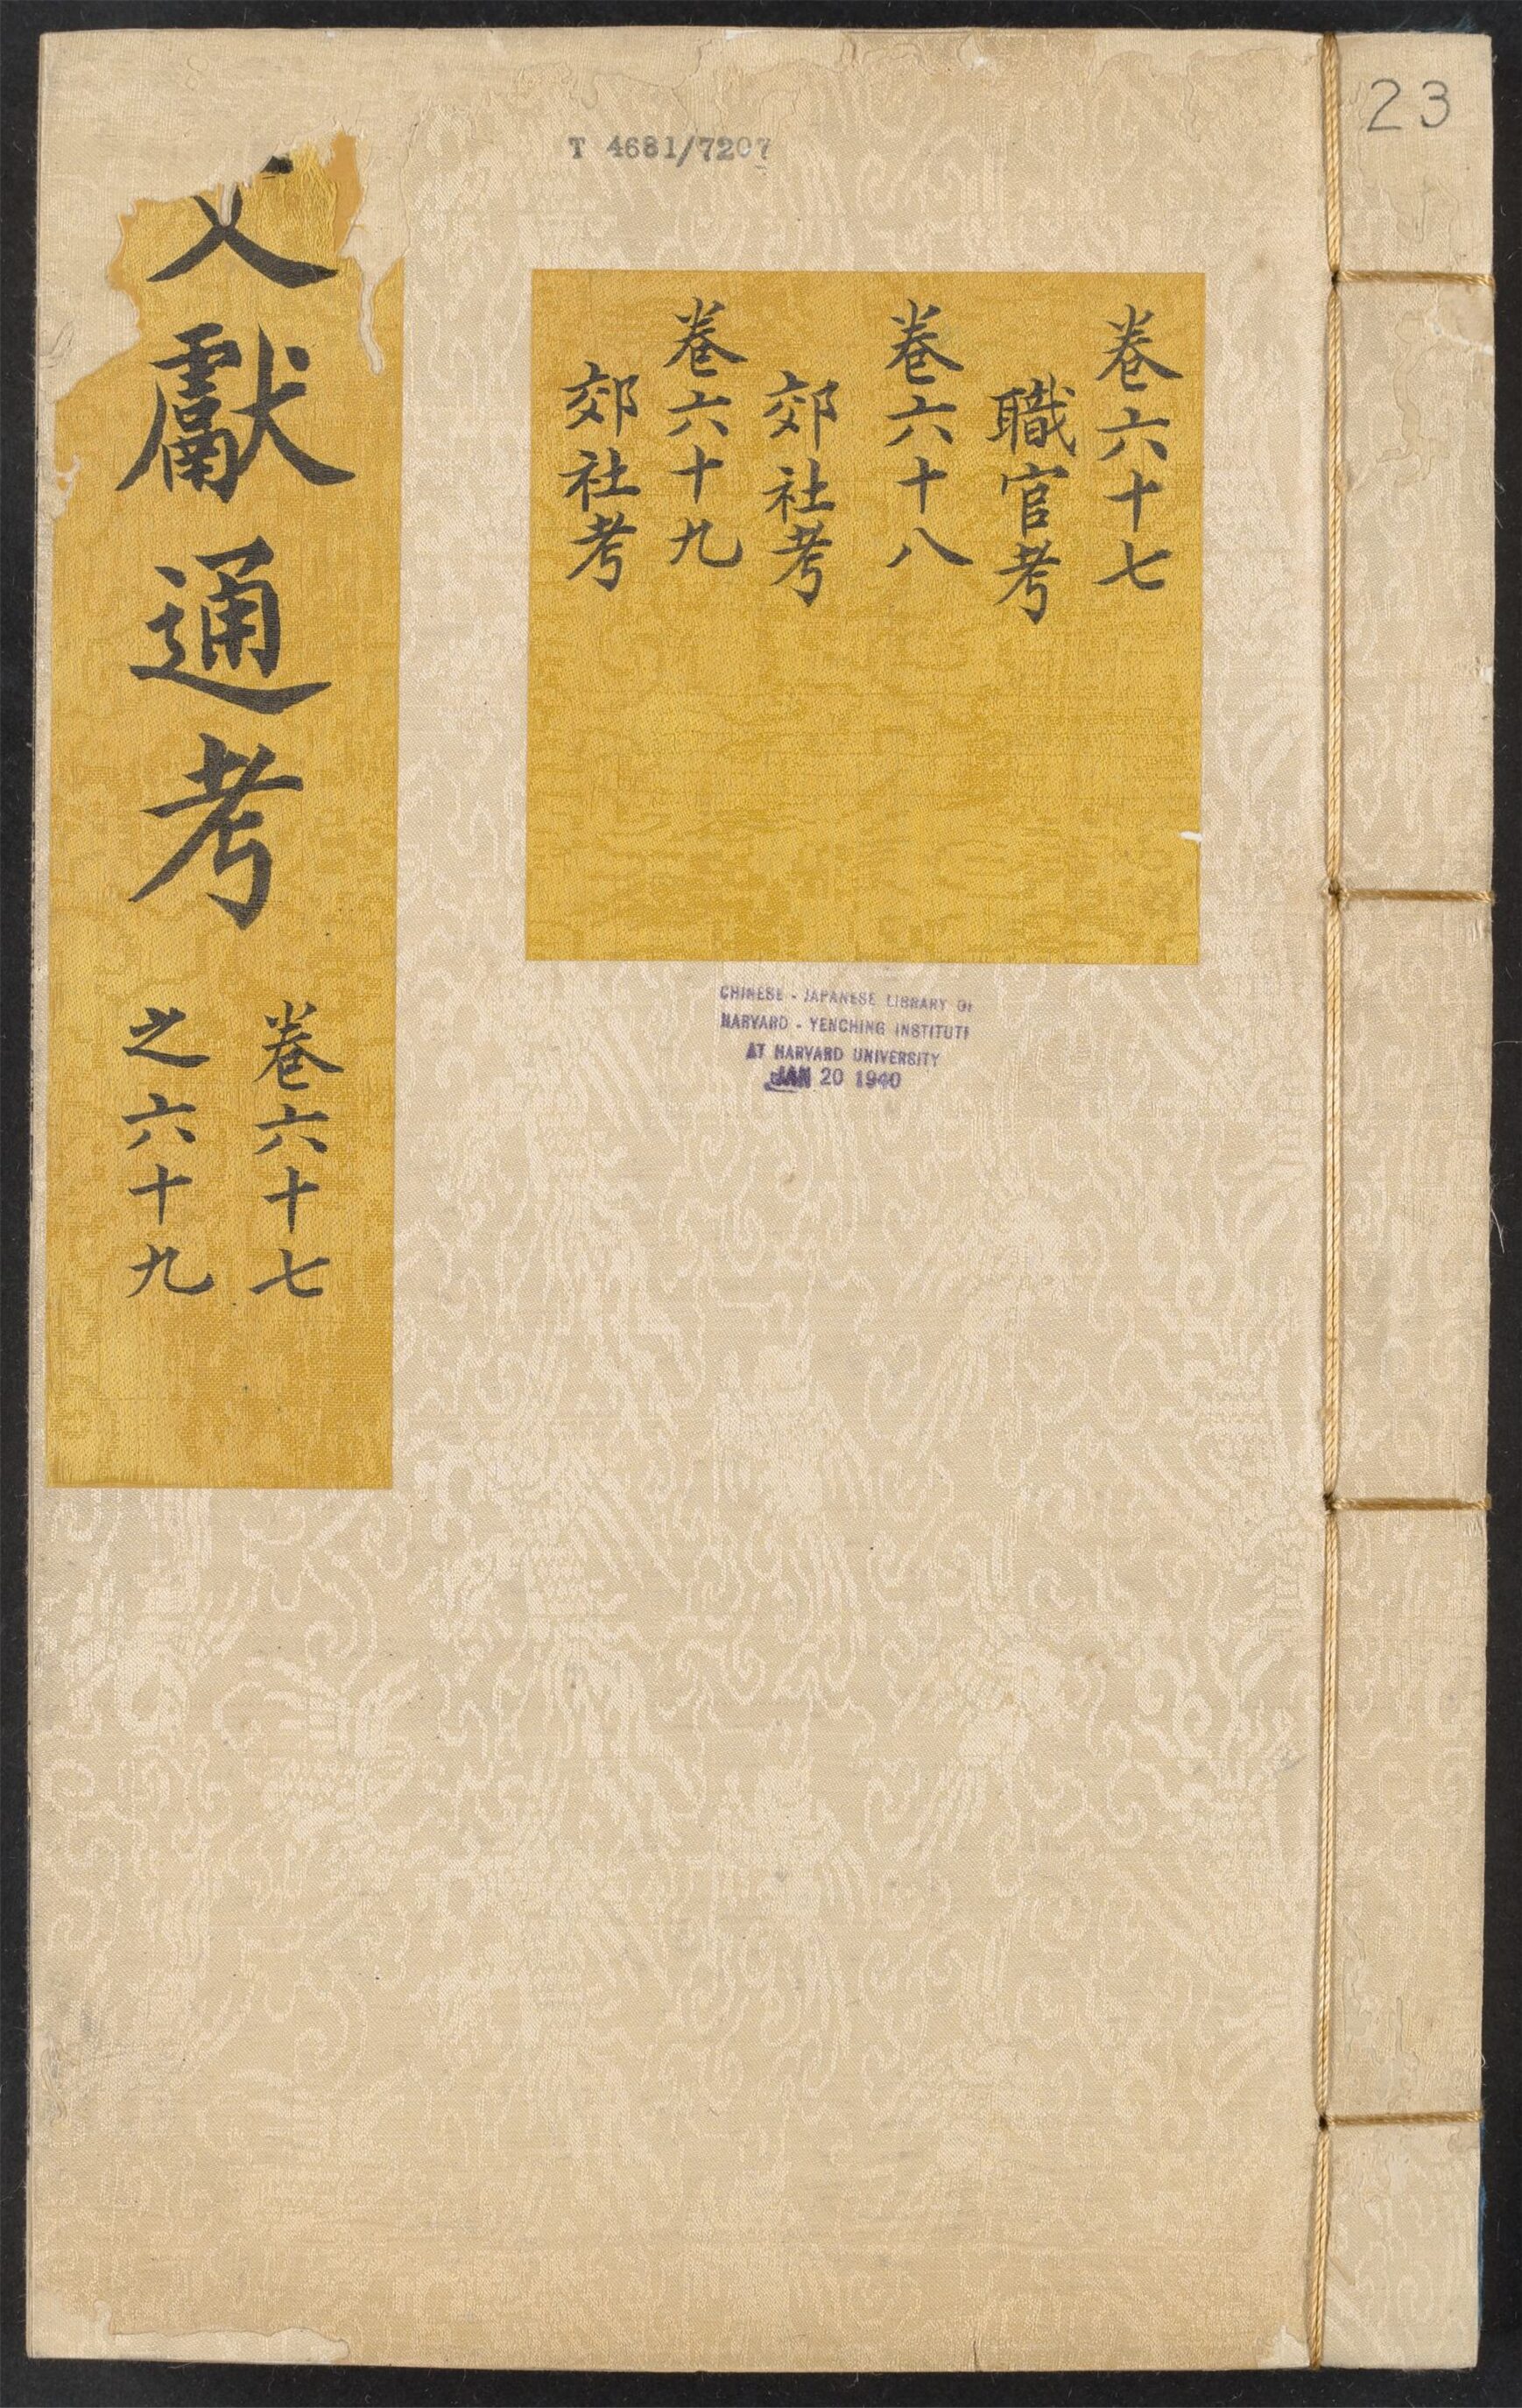 23
T 4681/7207
卷六十七
職官考
卷六十八
郊社考
卷六十九
郊社考
文獻通考
卷六十七
之六十九
CHINESE - JAPANESE LIBRARY OF
HARVARD - YENCHING INSTITUTE
AT HARVARD UNIVERSITY
JAN 20 1940